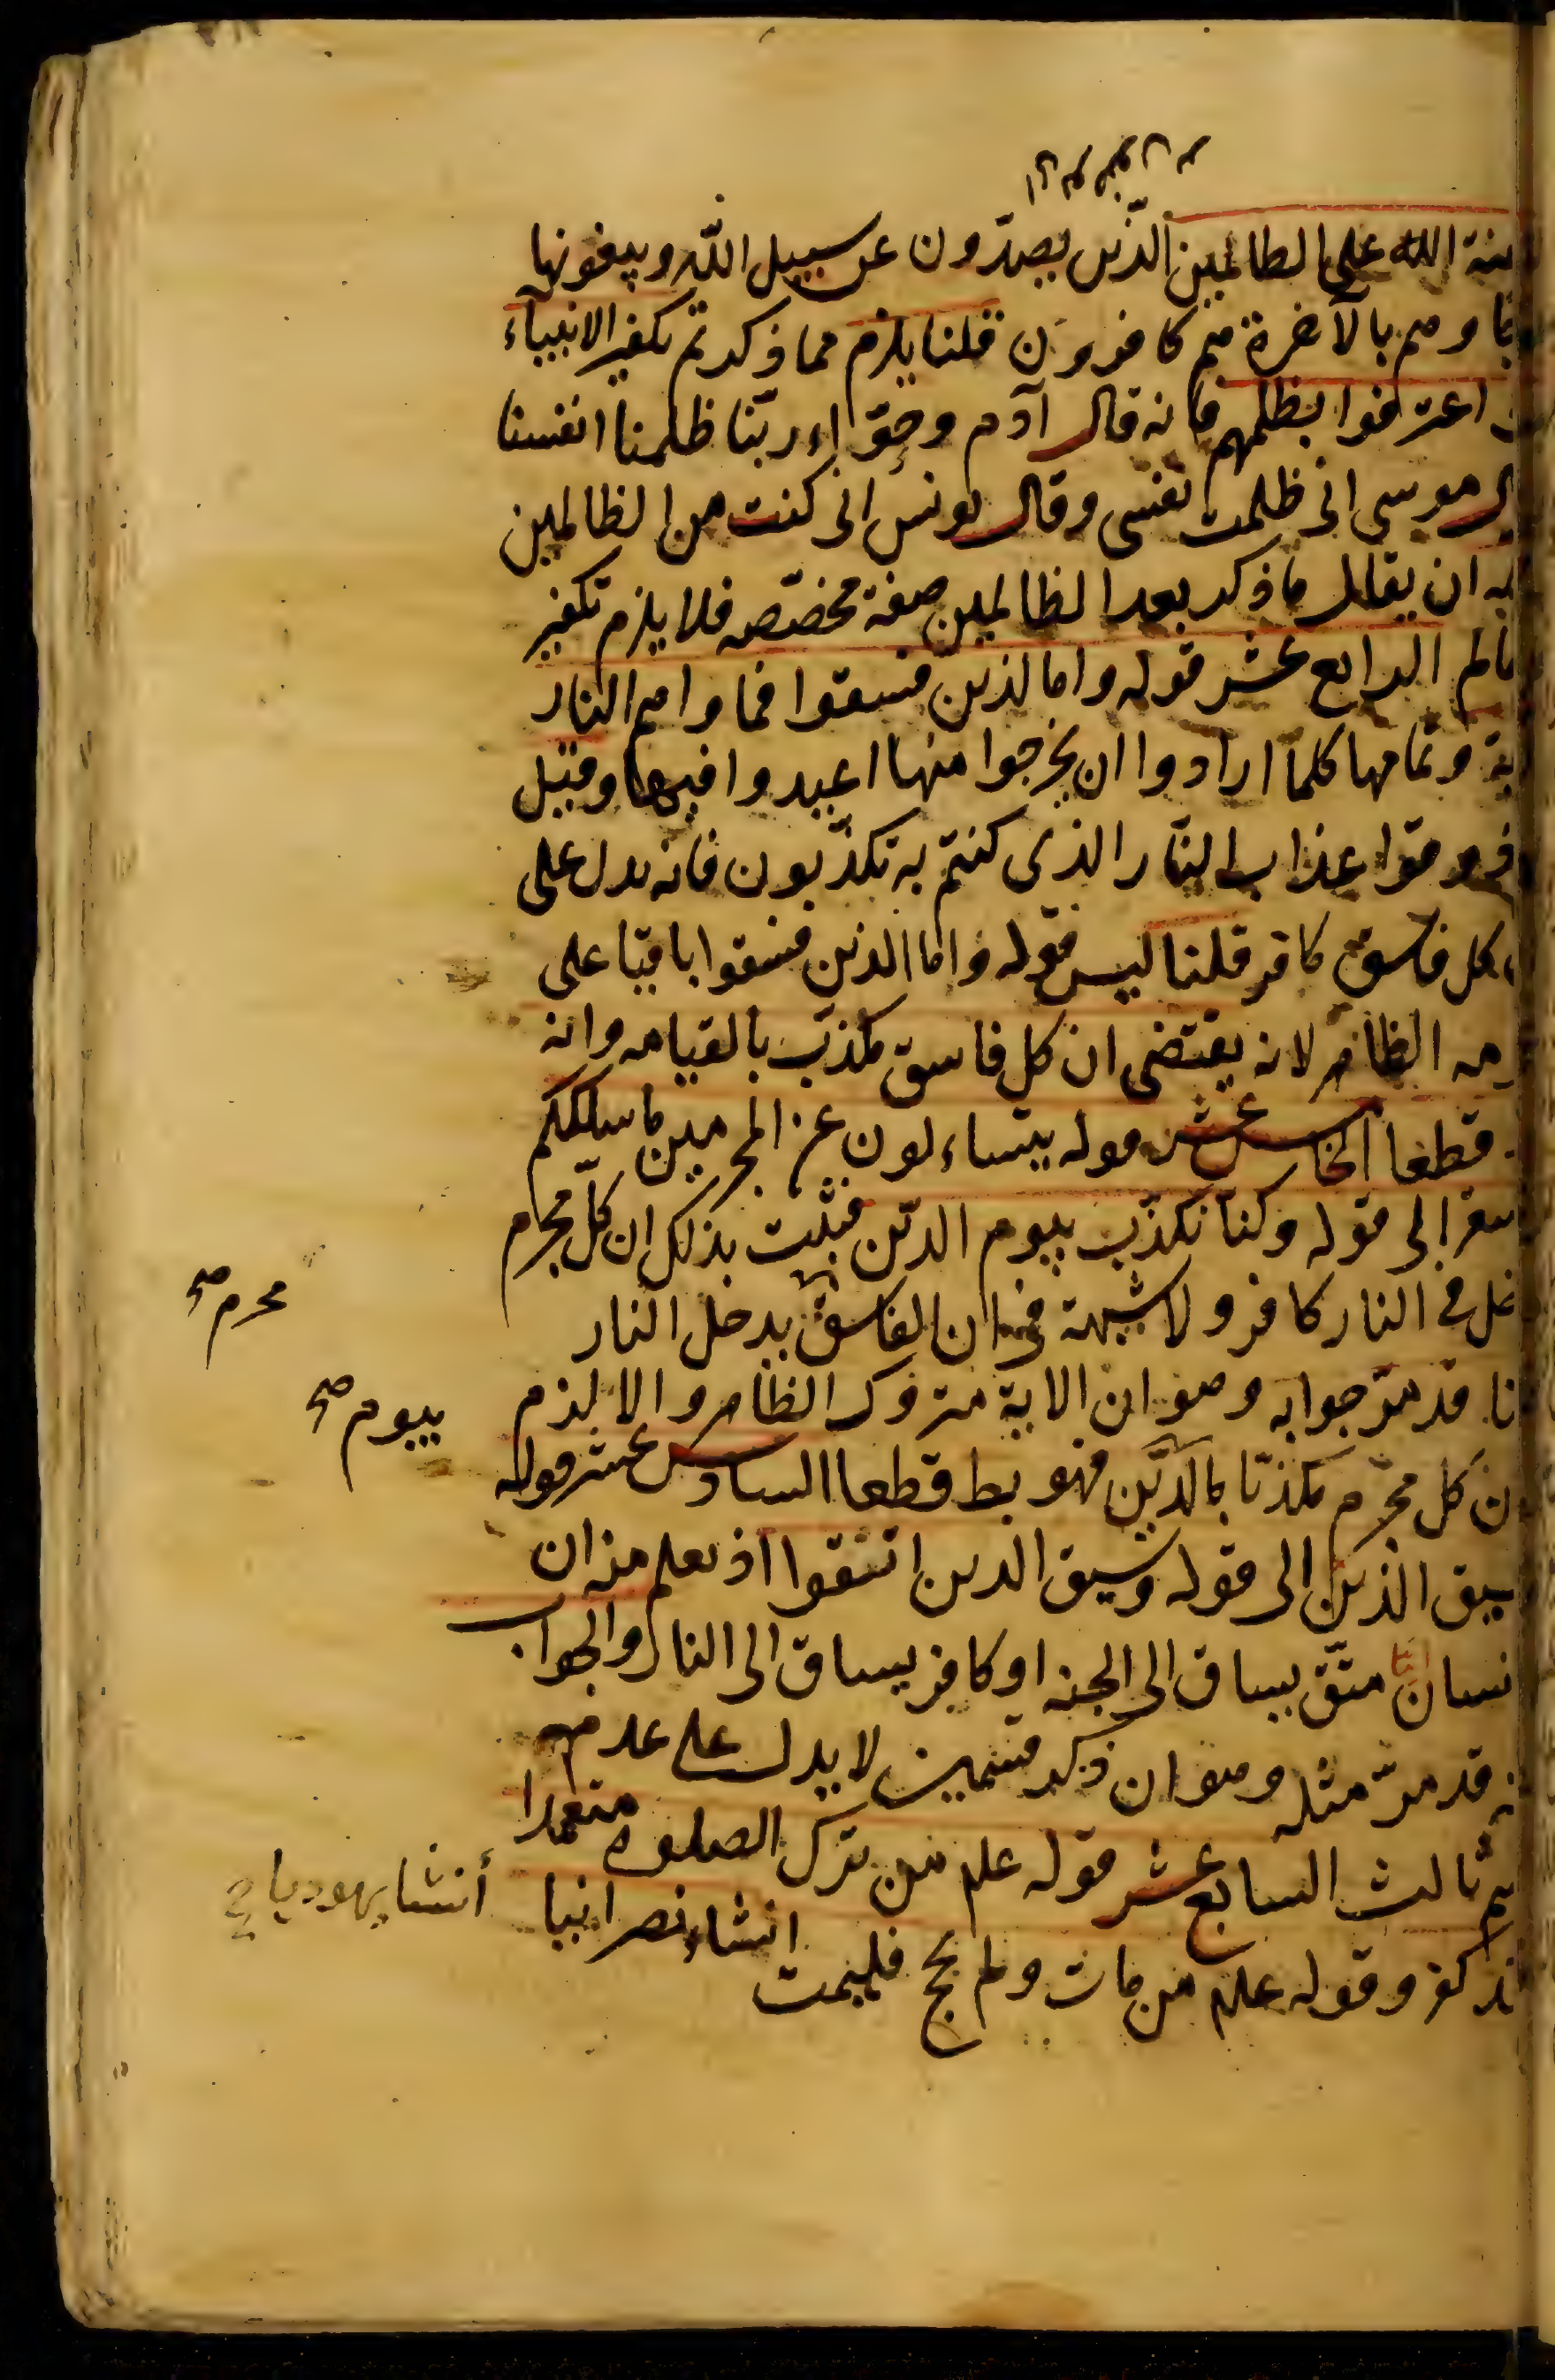 الله على الظالمين الذين يصدّون عن سبيل الله ويبغونها
وهم بالآخرة هم كافرون قلنا يلزم مما ذكرتم تكفير الانبياء
اعترفوا بظلمهم فانه قال آدم وحوّاء ربّنا ظلمنا انفسنا
موسى انى ظلمت نفسى وقال يونس انى كنت من الظالمين
ان يقال ما ذكر بعد الظالمين صفة مخصّصه فلا يلزم تكفير
الرابع عشر قوله واما الذين فسقوا فماواهم النار
وتمامها كلما ارادوا ان يخرجوا منها اعيدوا فيها وقيل
ذوقوا عذاب النّار الذى كنتم به تكذّبون فانه يدل على
كل فاسق كافر قلنا ليس قوله واما الذين فسقوا باقيا على
الظاهر لانه يقتضى ان كل فاسق مكذب بالقيامه وانه
قطعا الخامس عشر قوله يتساءلون عن المجرمين ما سلككم
سقر الى قوله وكنا نكذّب بيوم الدّين فثبت بذلك ان كلّ مجرم
فى النار كافر ولا شبهة فى ان الفاسق يدخل النار
قد مرّ جوابه وهو ان الاية متروك الظاهر والا لزم
كل مجرم مكذبا بالدّين فهو بط قطعا السادس عشر قوله
الذين الى قوله وسيق الذين اتّقوا اذ يعلم منه ان
اما متّق يساق الى الجنه او كافر يساق الى النار والجواب
قد مرّ مثله وهو ان ذكر قسمين لا يدل على عدم
ثالث السابع عشر قوله علم من ترك الصلوه متعمدا
كفر وقوله علم من مات ولم يحج فليمت انشاء نصرانيا
محرم صح
بيوم صح
أنشا يهوديا